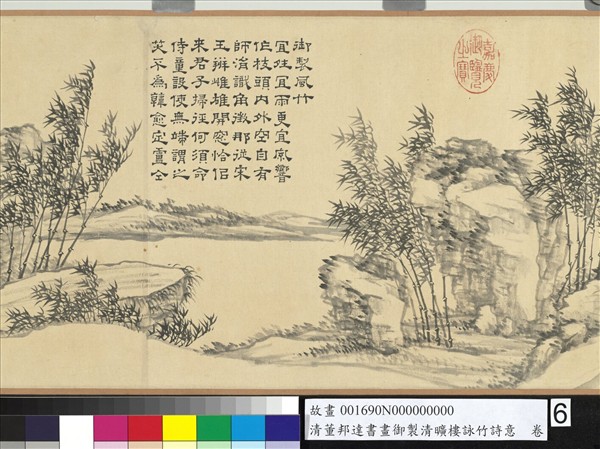 御製風竹
宜夝宜雨更宜風響
在枝頭内外空自有
師涓識角徵那從宋
玉辨雌雄開窓恰佀
來君子掃徑何須命
侍童設使無端謂之
笑不為韓愈定盧仝
嘉慶
御覽
之寶
故畫 001690N000000000
清董邦達書畫御製清曠樓詠竹詩意 卷
6